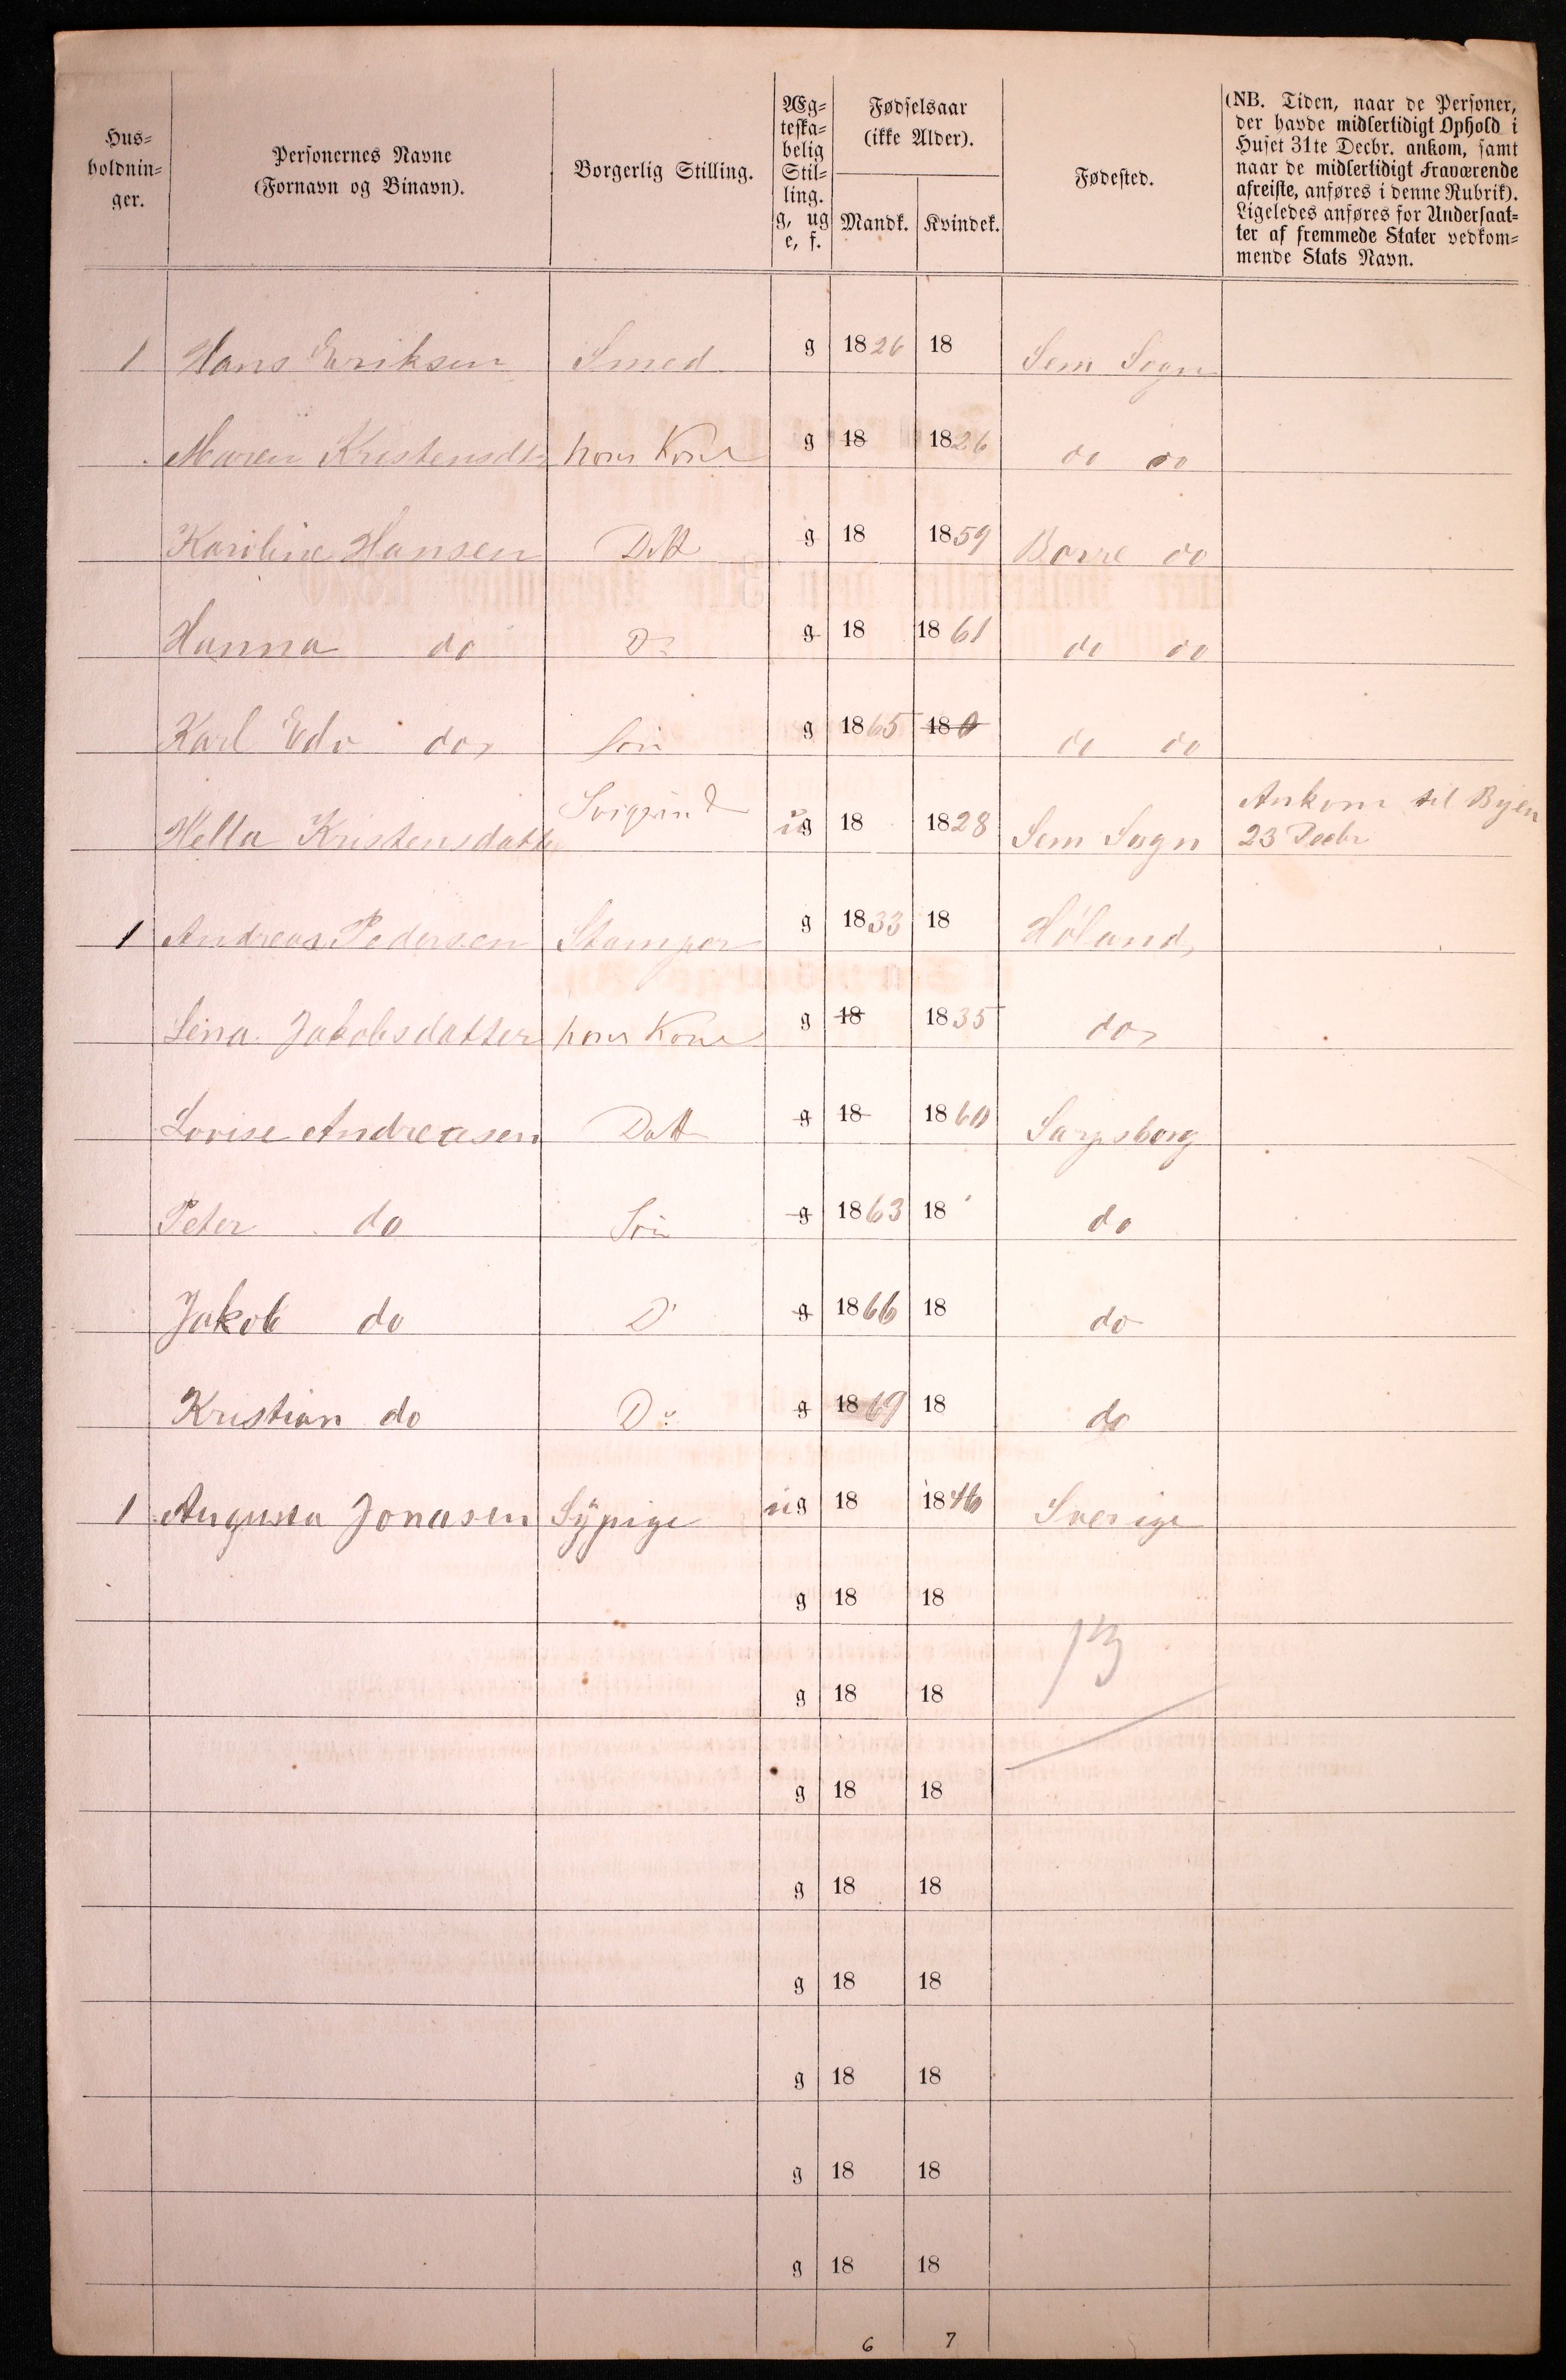 Hus-
holdnin-
ger.
Personernes Navne
(Fornavn og Binavn).
Borgerlig Stilling.
Æg-
teska-
belig
Stil-
ling.
g, ug
e, f.
Fødselsaar
(ikke Alder).
Mandk. Kvindek.
Fødested.
(NB. Tiden, naar de Personer,
der havde midlertidigt Ophold i
Huset 31te Decbr. ankom, samt
naar de midlertidigt Fraværende
afreiste, anføres i denne Rubrik).
Ligeledes anføres for Undersaat-
ter af fremmede Stater vedkom-
mende Stats Navn.
1 Hans Eriksen Smed g 1826 18 Sem Sogn
Maren Kristensdtr hans Kone g 18 1826 do do
Karoline Hansen Datt g 18 1859 Borre do
Hanna do Do g 18 1861 do do
Karl Edv do, Søn g 1865 18 do do
Hella Kristensdatter ug 18 1828 Sem Sogn Ankom til Byen
23 Decbr
1 Andreas Pedersen Stamper g 1833 18 Höland,
Lina Jakobsdatter hans Kone g 18 1835 do,
Lovise Andreasen Datt g 18 1860 Sarpsborg
Peter do Søn g 1863 18 do
Jakob do D g 1866 18 do
Kristian do Do g 1869 18 do
1 Augusta Jonasen Sÿpige ug 18 1846 Sverige
g 18 18
13
g 18 18
g 18 18
g 18 18
g 18 18
g 18 18
g 18 18
g 18 18
6 7